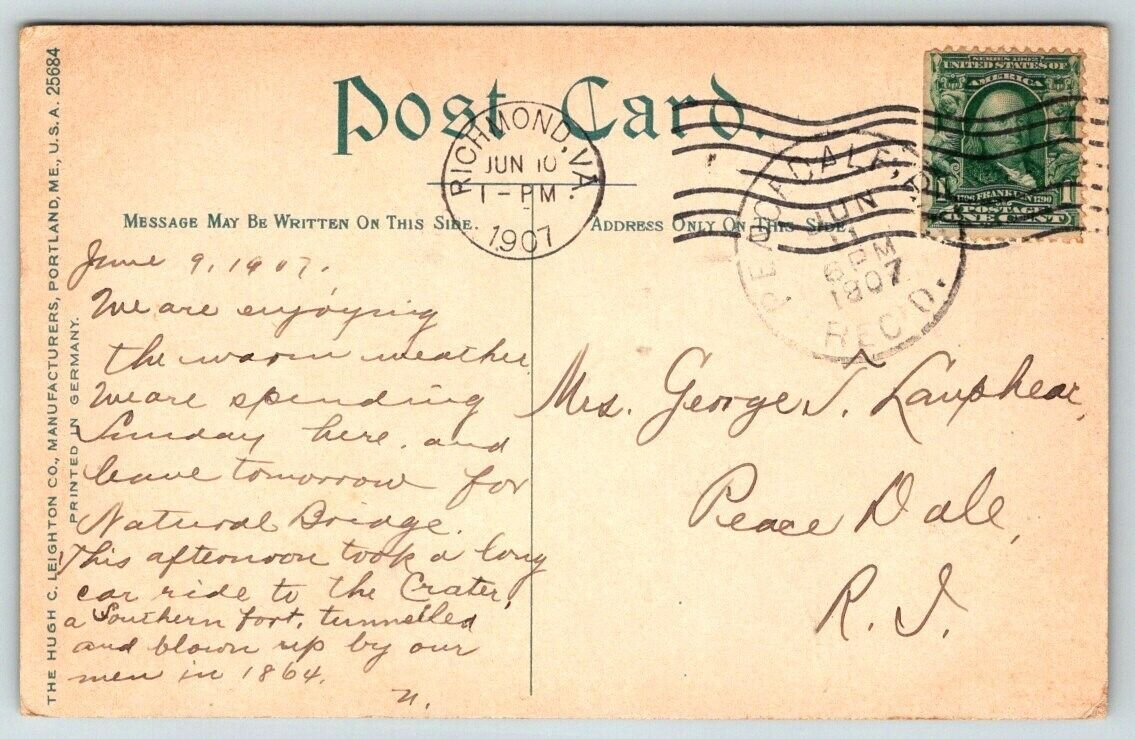 Post Card.
RICHMOND, VA.
JUN 10
1-PM
1907
PEACADALE, R.
JUN
11
6 PM
1907
REC'D.
SERIES 1902
UNITED STATES OF
AMERICA
1706 FRANKLIN 1790
POSTAGE
ONE CENT
MESSAGE MAY BE WRITTEN ON THIS SIDE.
ADDRESS ONLY ON THIS SIDE.
June 9, 1907.
We are enjoying
the warm weather
We are spending
Sunday here, and
leave tomorrow for
Natural Bridge.
This afternoon took a long
car ride to the Crater,
a Southern fort, tunnelled
and blown up by our
men in 1864.
N.
Mrs. George J. Lanphear,
Peace Dale,
R. I.
THE HUGH C. LEIGHTON CO., MANUFACTURERS, PORTLAND, ME., U.S.A. 25684
PRINTED IN GERMANY.